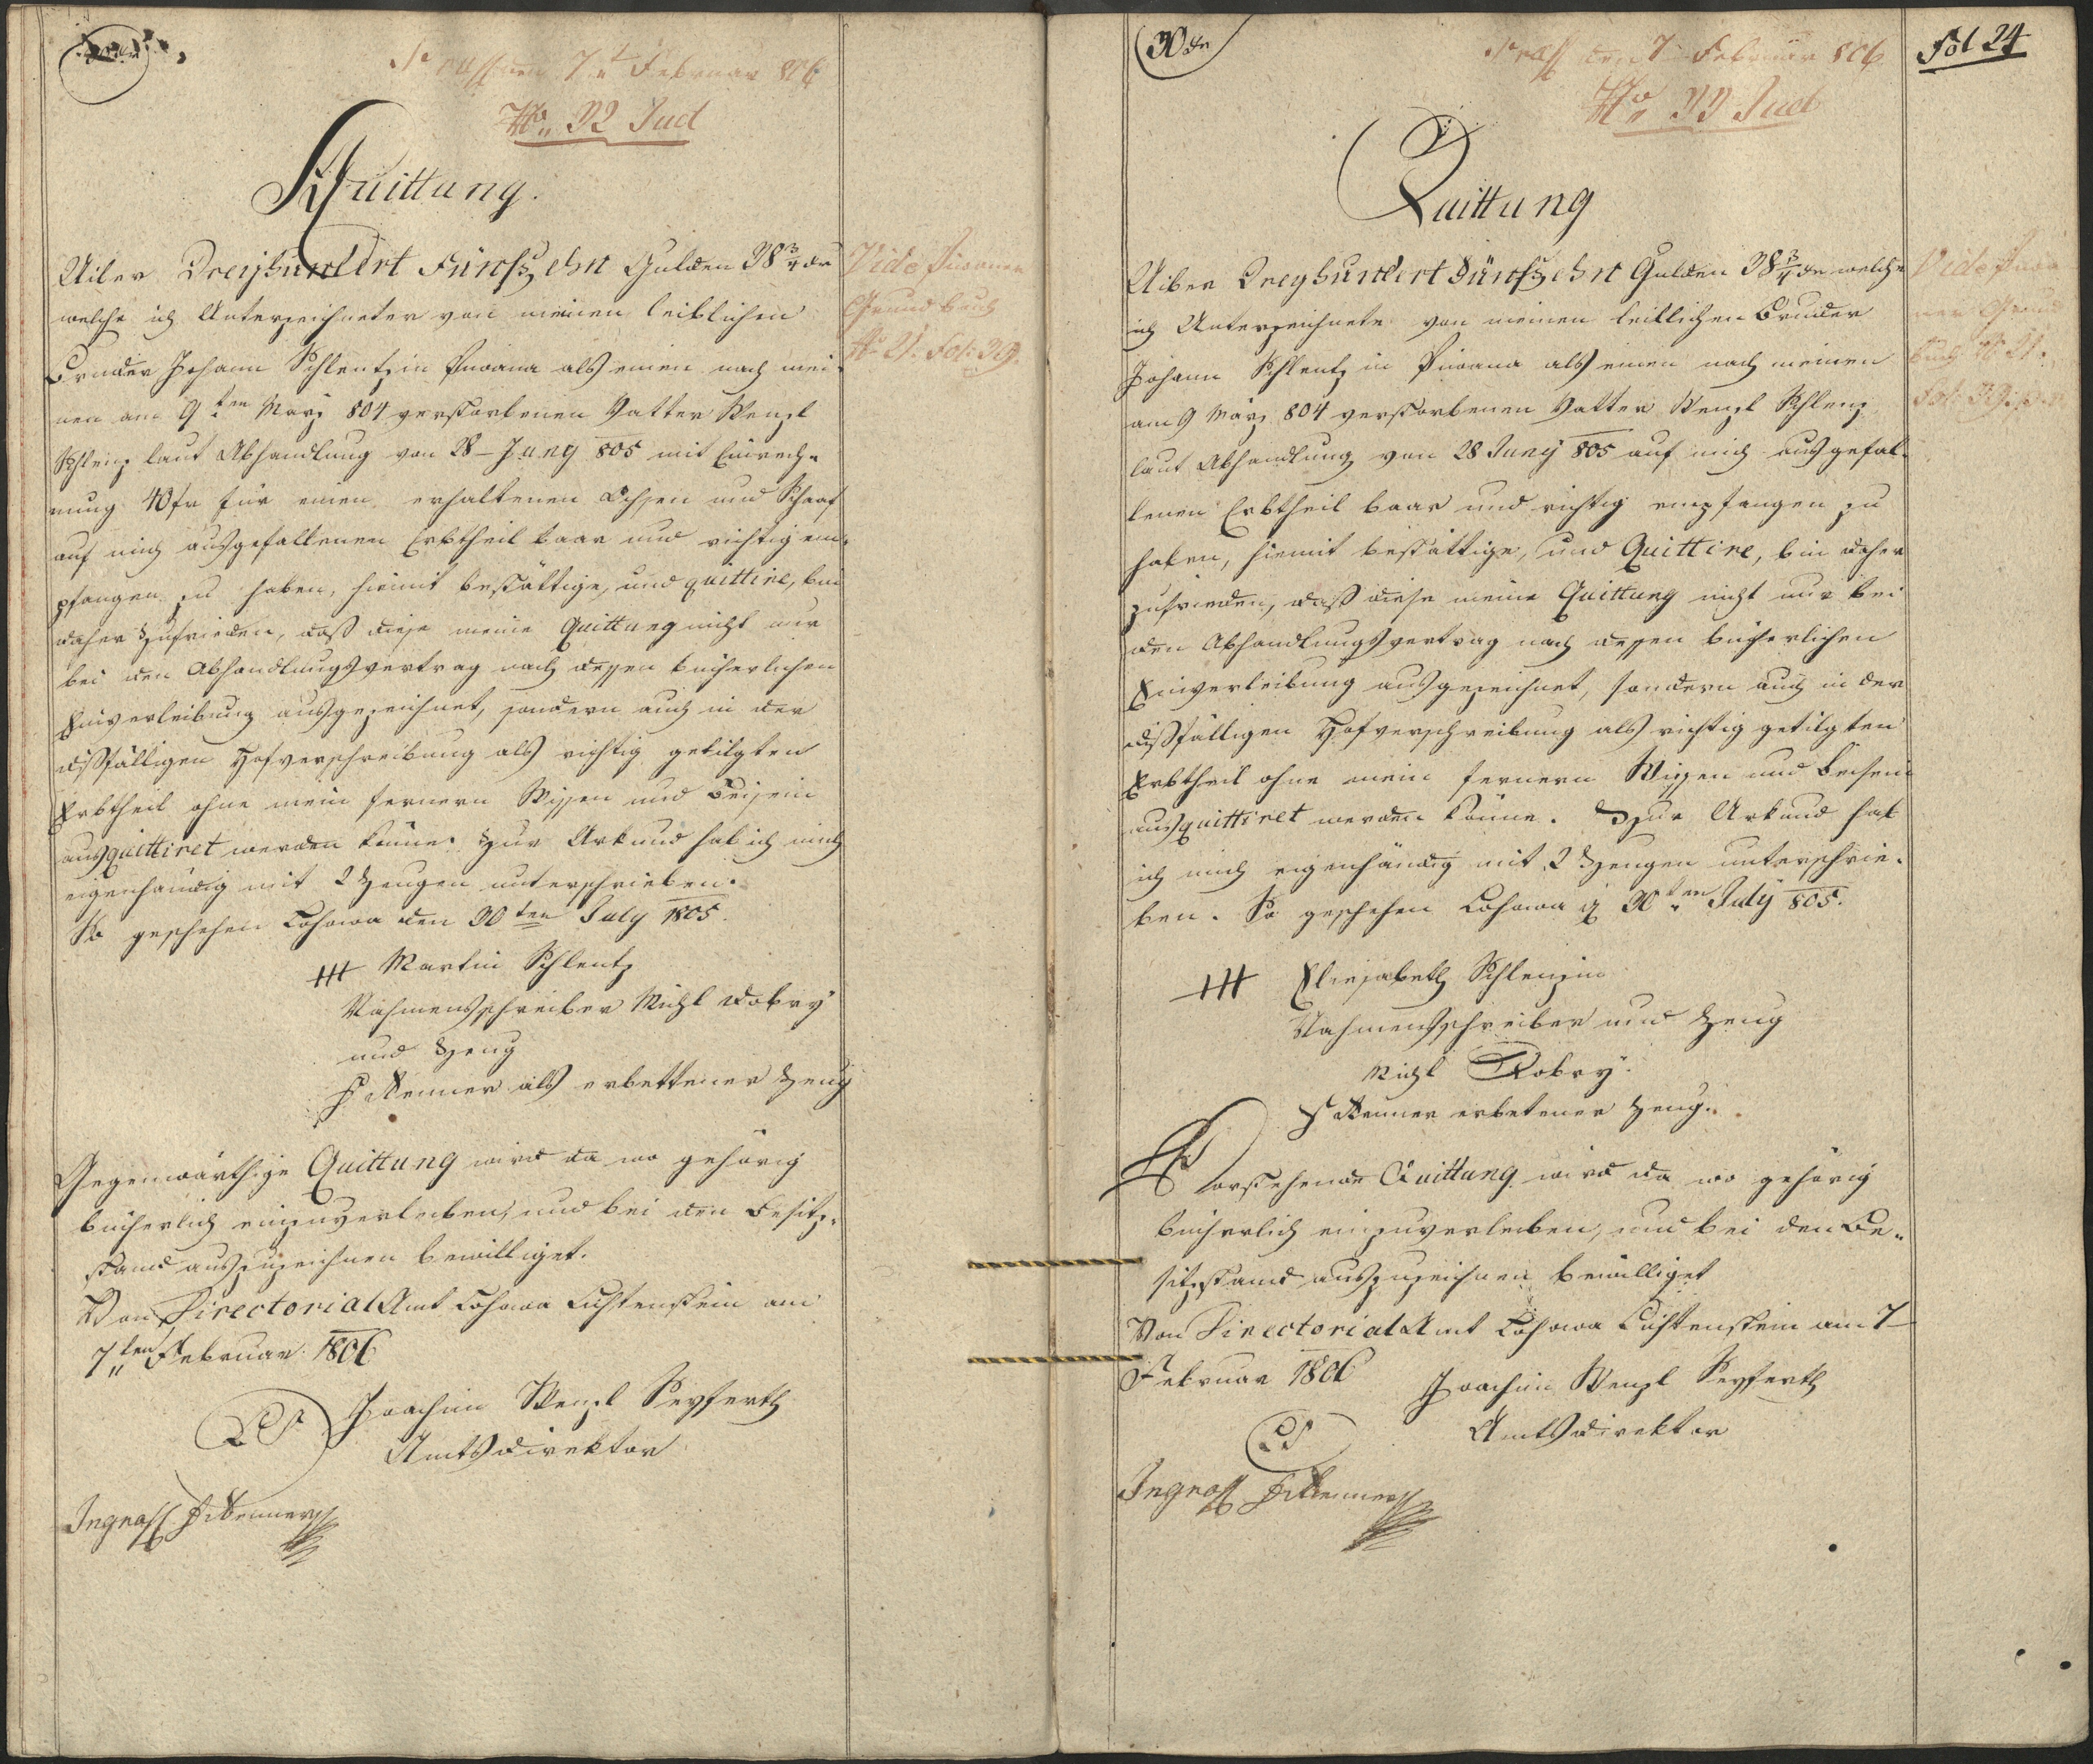 den 7t Februar 806
No 32 Jud
Quittung.
Uiber Dreyhundert Fünfzehn Gulden 38 3/4 xr
welche ich Unterzeichneter von meinen leiblichen
Bruder Johann Schlentz in als einen nach mei-
nen am 9ten März 804 verstorbenen Vatter Wenzl
Schlenz laut Abhandlung von 28 Juny 805 mit Einrech-
nung 40 fr für einen erhaltenen Ochsen und Schaaf
auf mich ausgefallenen Erbtheil baar und richtig em-
pfangen zu haben, hiemit bestättige, und quittire, bin
daher zufrieden, daß diese meine Quittung nicht nur
bei den Abhandlungsvertrag nach dessen bücherlichen
Einverleibung ausgezeichnet, sondern auch in der
dißfälligen Hofverschreibung als richtig getilgten
Erbtheil ohne mein fernern Wissen und Beisein
ausquittiret werden könne. Zur Urkund hab ich mich
eigenhändig mit 2 Zeugen unterschrieben.
So geschehen Cohowa den 30ten July 1805.
+++ Martin Schlentz
Nahmensschreiber Michl Dobry
und Zeug
als erbettener Zeug
Gegenwärthige Quittung wird da wo gehörig
bücherlich einzuverleiben, und bei den Besitz-
stand auszuzeichnen bewilliget.
Von Directorial Amt Cohowa Lichtenstein am
7ten Februar 1806
LS Joachim Wenzl Seyferth
Amtsdirektor
Ingross
Vide
Grundbuch
No 21. Fol: 39.
30xr
Fol 24
den 7 Februar 806
No 33 Jud
Quittung
Uiber Dreyhundert Fünfzehn Gulden 38 3/4 xr welche
ich Unterzeichnete von meinen leiblichen Bruder
Johann Schlentz in als einen nach meinen
am 9 März 804 verstorbenen Vatter Wenzl Schlenz
laut Abhandlung von 28 Juny 805 auf mich ausgefal-
lenen Erbtheil baar und richtig empfangen zu
haben, hiemit bestättige, und Quittire, bin daher
zufrieden, daß diese meine Quittung nicht nur bei
den Abhandlungsvertrag nach dessen bücherlichen
Einverleibung ausgezeichnet, sondern auch in der
dißfälligen Hofverschreibung als richtig getilgten
Erbtheil ohne mein fernern Wissen und Beisein
ausquittiret werden könne. Zur Urkund hab
ich mich eigenhändig mit 2 Zeugen unterschrie-
ben. So geschehen Cohowa 30ten July 805.
+++ Eliesabeth Schlenzin
Nahmensschreiber und Zeug
Michl Dobry.
erbetener Zeug.
Vorstehende Quittung wird da wo gehörig
bücherlich einzuverleiben, und bei den Be-
sitzstand auszuzeichnen bewilliget
Von Directorial Amt Cohowa Lichtenstein am 7
Februar 1806 Joachim Wenzl Seyferth
LS Amtsdirektor
Ingross
Vide
Grund
buch No 21.
Fol: 39.